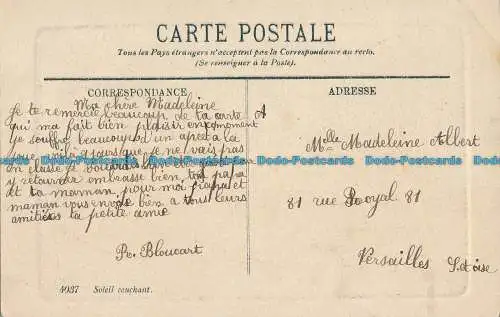 CARTE POSTALE
Tous les Pays étrangers n'acceptent pas la Correspondance au recto.
(Se renseigner à la Poste).
CORRESPONDANCE
Ma chère Madeleine
je te remercie beaucoup de ta carte
qui ma fait bien plaisir en moment
je souffre beaucoup d'un apcè a la
que je ne vais pas
en classe je voudrais
y retourner embrasse bien ton papa
et ta maman, pour moi papa et
maman vous envoie bien a tous leurs
amitiés ta petite amie
R. Bloucart
4037 Soleil couchant.
ADRESSE
A
Melle Madeleine Albert
81 rue Royal 81
Versailles S. et oise
Dodo-Postcards Dodo-Postcards Dodo-Postcards Dodo-Postcards